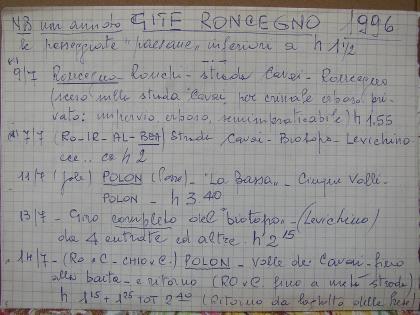 NB un annoto GITE RONCEGNO 1996
le passeggiate "paesane" inferiori a h 1 1/2
9/7 Roncegno - Ronchi - strada Cavai - Roncegno
(sceso sulla strada Cavai per crinale erboso pri-
vato: impervio, erboso, semimpraticabile) h 1.55
7/7 (Ro-IR-AL-BEN) Strada Cavai - Biotopo - Levichino
ecc.. ca h 2
11/7 (sole) POLON - "La Bassa" - Cinque Valli -
POLON - h 3.40
13/7 - Giro completo del "biotopo" - (Levichino)
da 4 entrate ed altre. h 2 15
14/7 - (RO e C - CHIO e C.) POLON - Valle dei Cavai - fino
alla baita - e ritorno (RO e C. fino a metà strada)
h 1 15 + 1 25 tot 2 40 (ritorno da